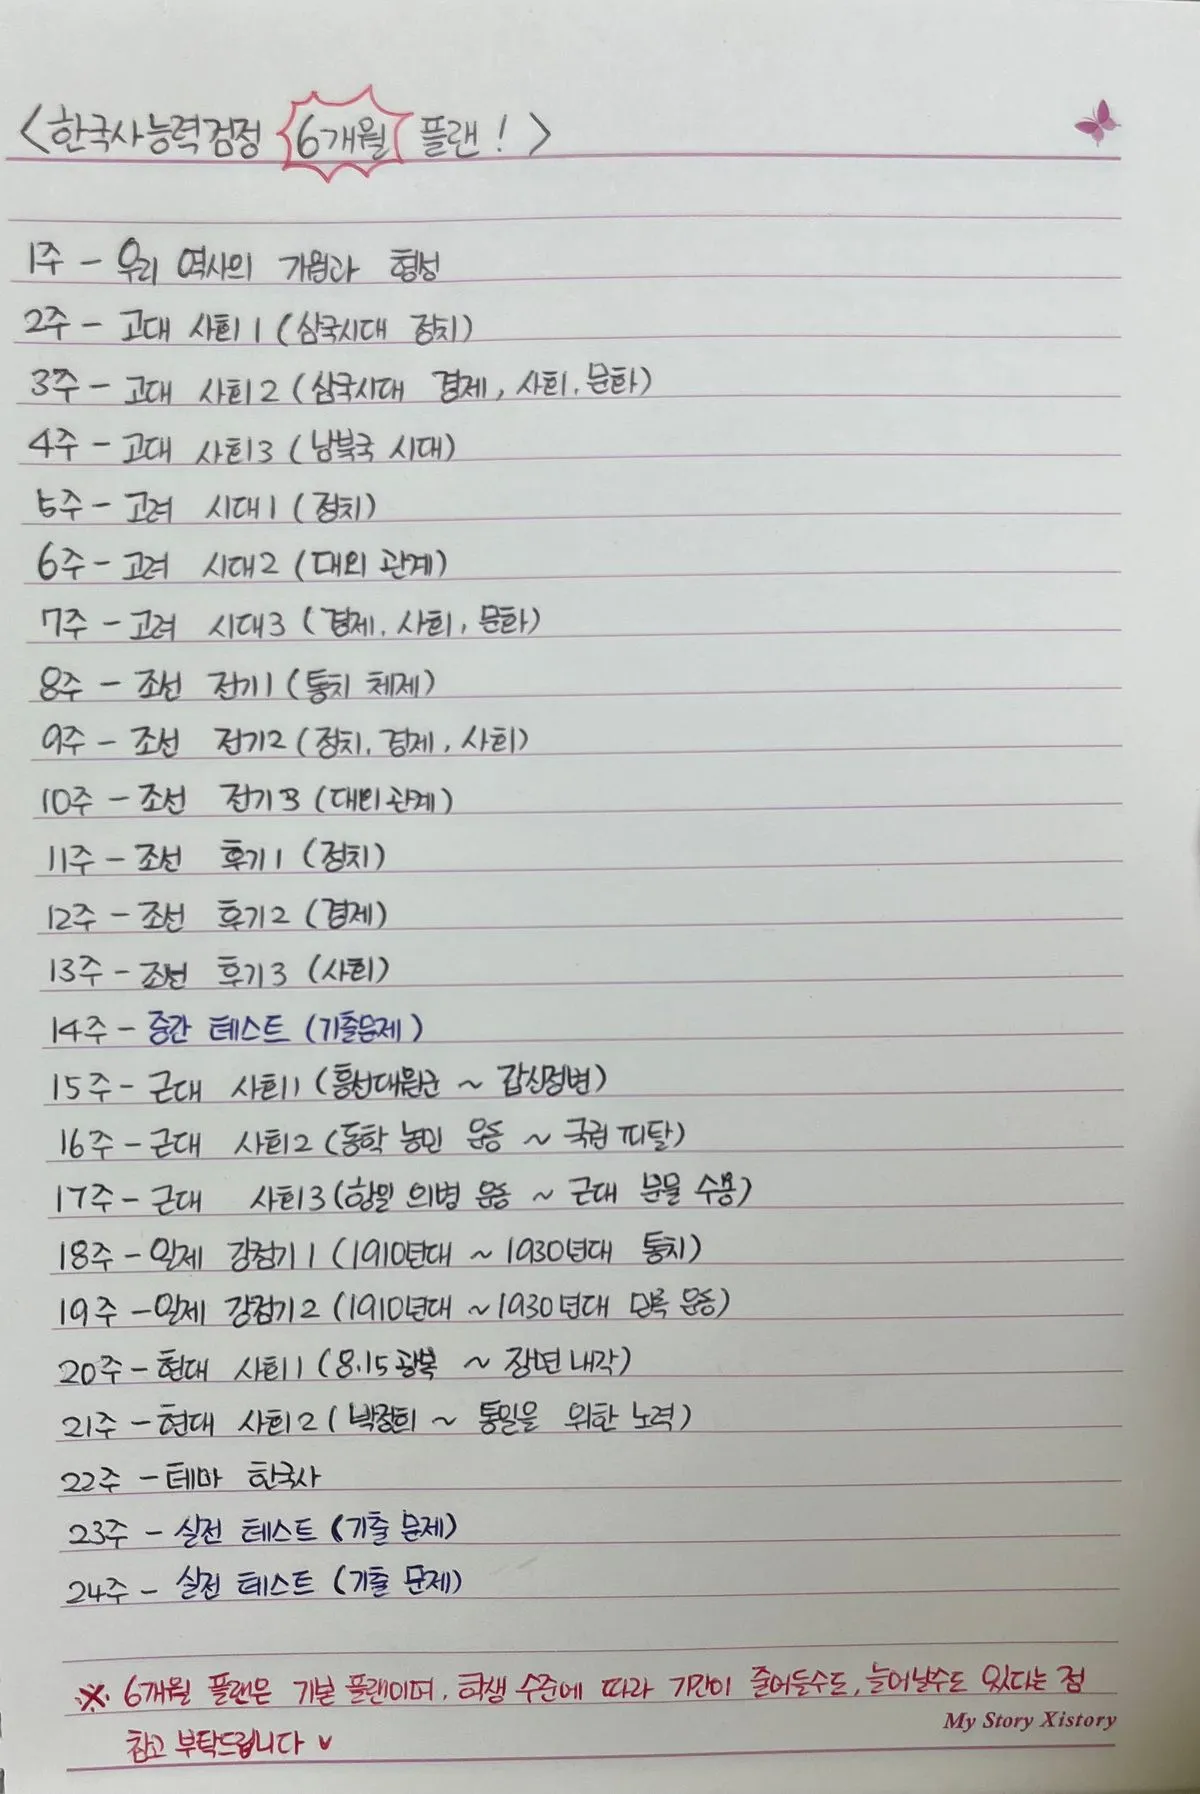 <한국사능력검정 6개월 플랜!>
1주 - 우리 역사의 기원과 형성
2주 - 고대 사회1 (삼국시대 정치)
3주 - 고대 사회2 (삼국시대 경제, 사회, 문화)
4주 - 고대 사회3 (남북국 시대)
5주 - 고려 시대1 (정치)
6주 - 고려 시대2 (대외 관계)
7주 - 고려 시대3 (경제, 사회, 문화)
8주 - 조선 전기1 (통치 체제)
9주 - 조선 전기2 (정치, 경제, 사회)
10주 - 조선 전기3 (대외관계)
11주 - 조선 후기1 (정치)
12주 - 조선 후기2 (경제)
13주 - 조선 후기3 (사회)
14주 - 중간 테스트 (기출문제)
15주 - 근대 사회1 (흥선대원군 ~ 갑신정변)
16주 - 근대 사회2 (동학 농민 운동 ~ 국권 피탈)
17주 - 근대 사회3 (항일 의병 운동 ~ 근대 문물 수용)
18주 - 일제 강점기1 (1910년대 ~ 1930년대 통치)
19주 - 일제 강점기2 (1910년대 ~ 1930년대 민족 운동)
20주 - 현대 사회1 (8.15 광복 ~ 장면 내각)
21주 - 현대 사회2 (박정희 ~ 통일을 위한 노력)
22주 - 테마 한국사
23주 - 실전 테스트 (기출 문제)
24주 - 실전 테스트 (기출 문제)
※ 6개월 플랜은 기본 플랜이며, 학생 수준에 따라 기간이 줄어들수도, 늘어날수도 있다는 점
My Story Xistory
참고 부탁드립니다 ♥